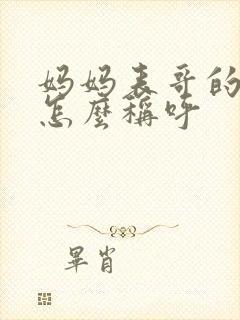 妈妈表哥的
怎麼稱呼
畢肖